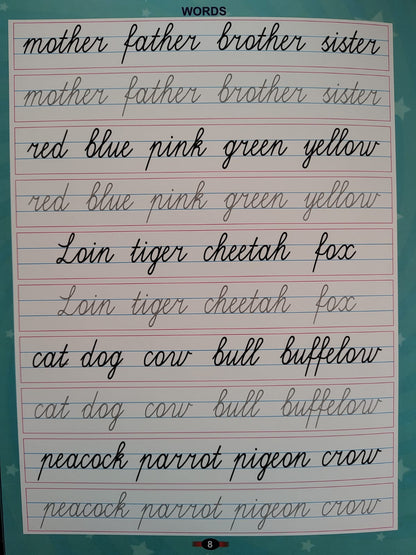 WORDS
mother father brother sister
mother father brother sister
red blue pink green yellow
red blue pink green yellow
Loin tiger cheetah fox
Loin tiger cheetah fox
cat dog cow bull buffelow
cat dog cow bull buffelow
peacock parrot pigeon crow
peacock parrot pigeon crow
8